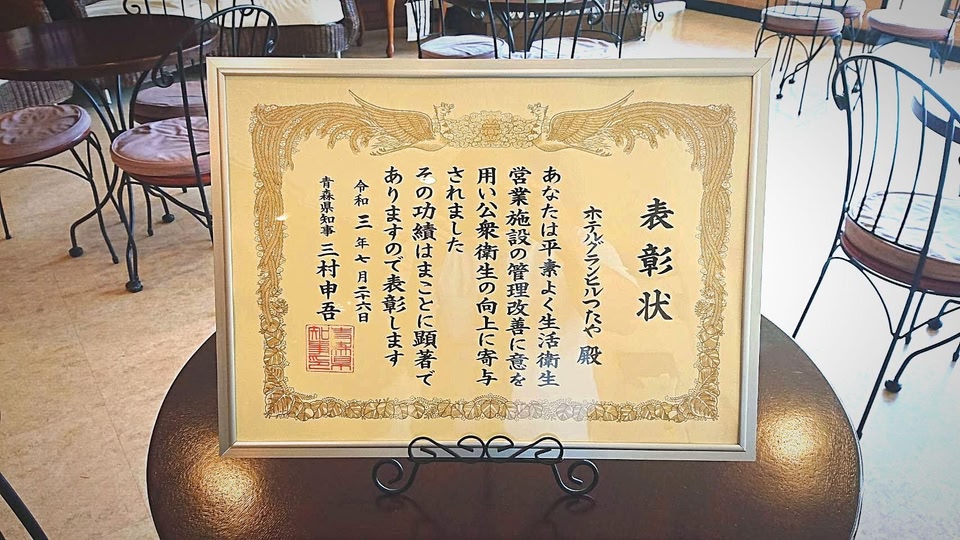 表彰状
ホテルグランヒルつたや 殿
あなたは平素よく生活衛生
営業施設の管理改善に意を
用い公衆衛生の向上に寄与
されました
その功績はまことに顕著で
ありますので表彰します
令和三年七月二十六日
青森県知事 三村申吾
青森県知事之印